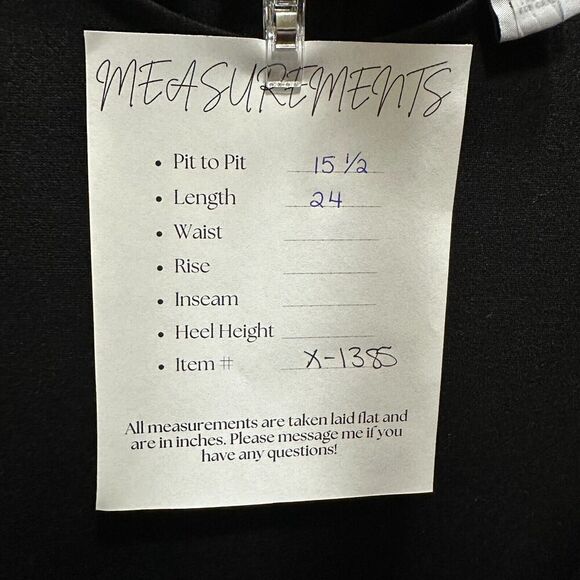 MEASUREMENTS
• Pit to Pit 15 1/2
• Length 24
• Waist
• Rise
• Inseam
• Heel Height
• Item # X-1385
All measurements are taken laid flat and
are in inches. Please message me if you
have any questions!